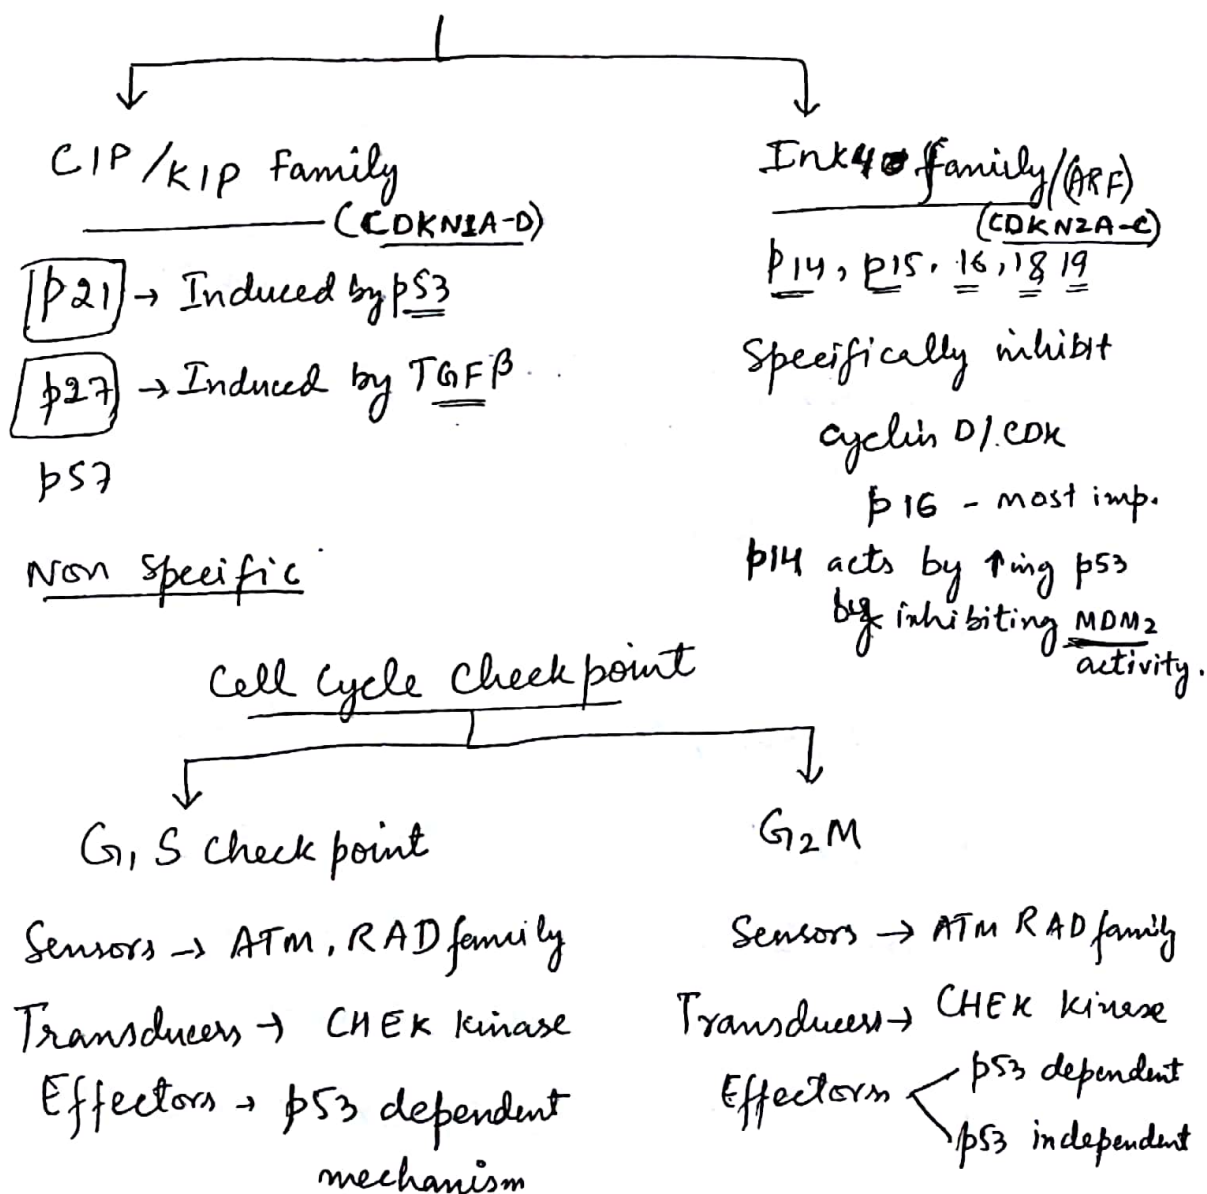 CIP/KIP family
(CDKN1A-D)
p21 → Induced by p53
p27 → Induced by TGFβ
p57
Non Specific
Ink4 family/(ARF)
(CDKN2A-C)
p14, p15, 16, 18 19
Specifically inhibit
cyclin D/CDK
p16 - most imp.
p14 acts by ↑ing p53
by inhibiting MDM2
activity.
Cell cycle checkpoint
G1 S check point
Sensors → ATM, RAD family
Transducers → CHEK kinase
Effectors → p53 dependent
mechanism
G2M
Sensors → ATM RAD family
Transducers → CHEK kinase
Effectors
p53 dependent
p53 independent